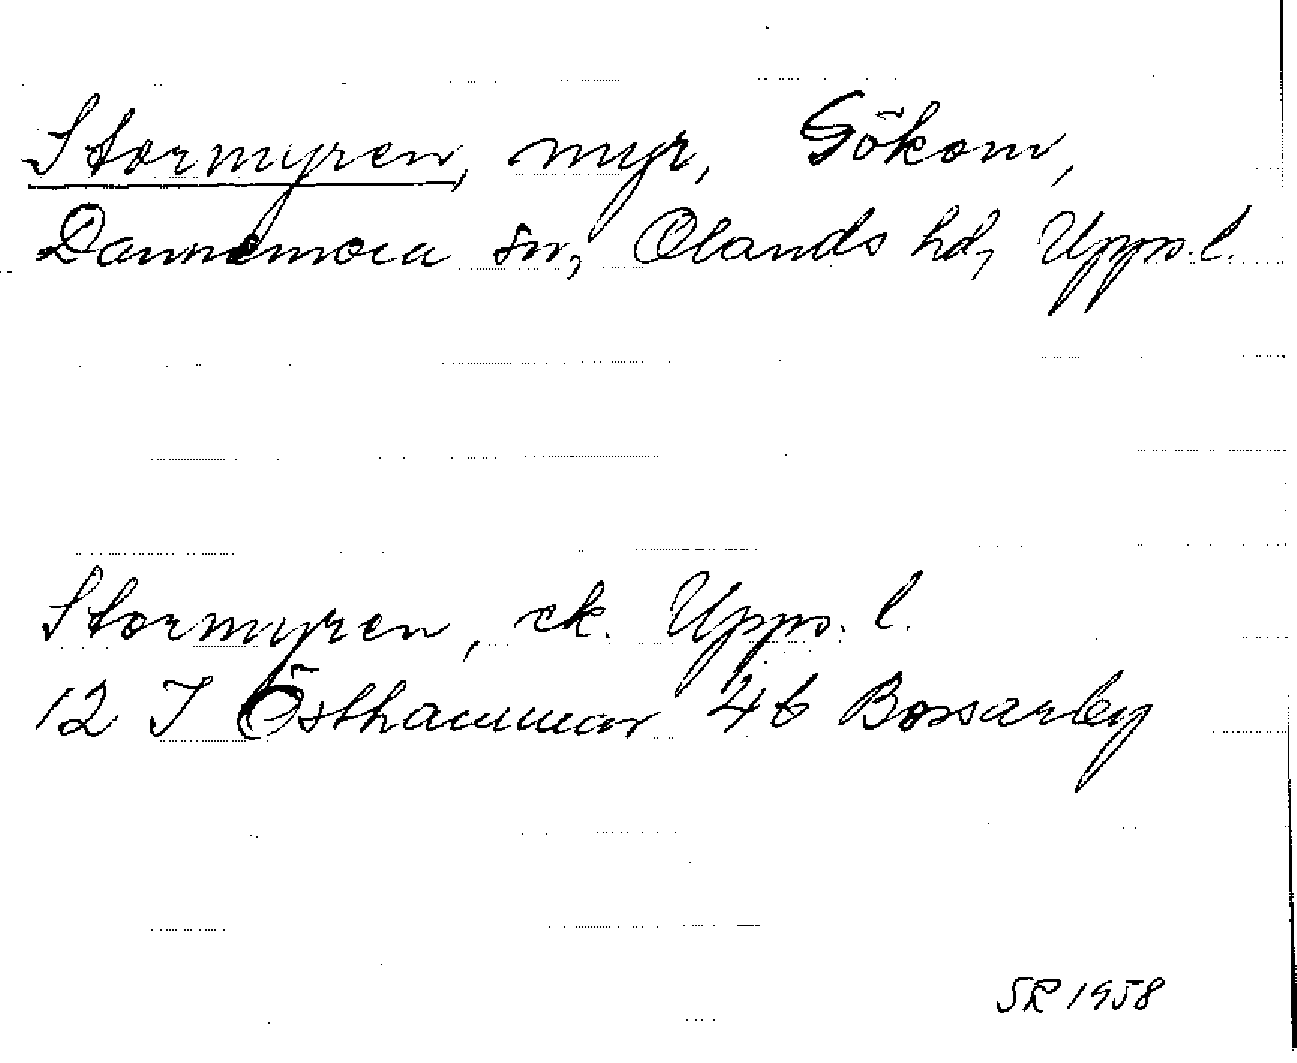 Stormyren, myr, Gökom,
Dannemora sn, Olands hd, Upps. l.
Stormyren, ek. Upps. l.
12 I Östhammar 4b Bossarby
SR 1958